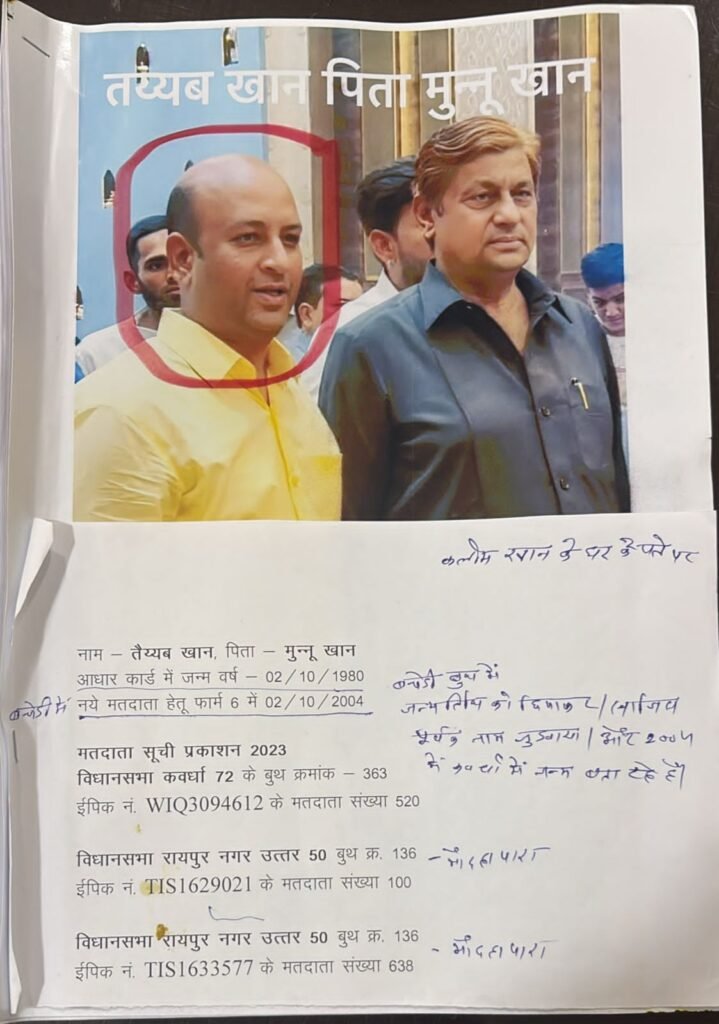 तय्यब खान पिता मुन्नू खान
कलीम खान के घर के पते पर
नाम – तैय्यब खान, पिता – मुन्नू खान
आधार कार्ड में जन्म वर्ष – 02/10/1980
नये मतदाता हेतू फार्म 6 में 02/10/2004
बुथ में
जन्मतिथि को छिपाकर/साजिश
पूर्वक नाम जुड़वाया/और 2004
में कवर्धा में जन्म बता रहे हैं/
मतदाता सूची प्रकाशन 2023
विधानसभा कवर्धा 72 के बुथ क्रमांक – 363
ईपिक नं. WIQ3094612 के मतदाता संख्या 520
विधानसभा रायपुर नगर उत्तर 50 बुथ क्र. 136 – मौदहापारा
ईपिक नं. TIS1629021 के मतदाता संख्या 100
विधानसभा रायपुर नगर उत्तर 50 बुथ क्र. 136 – मौदहापारा
ईपिक नं. TIS1633577 के मतदाता संख्या 638